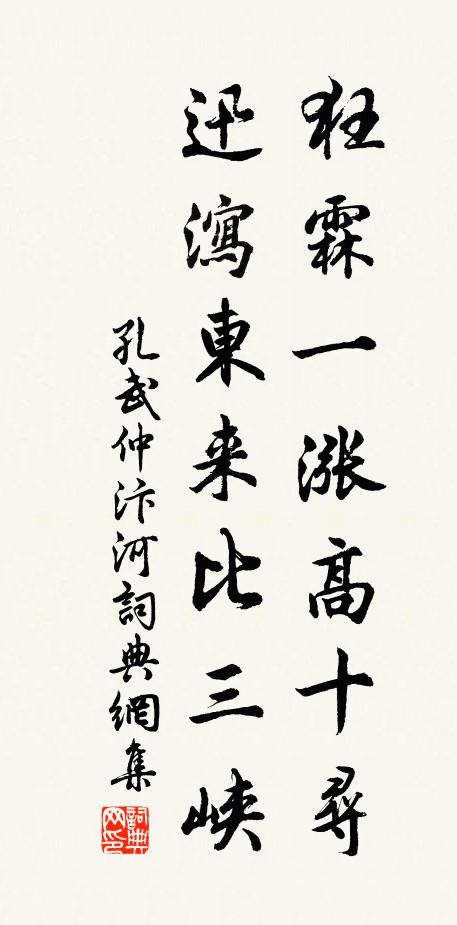 狂霖一漲高十尋
迅瀉東来比三峡
孔武仲汴河詞典網集
詞典网印